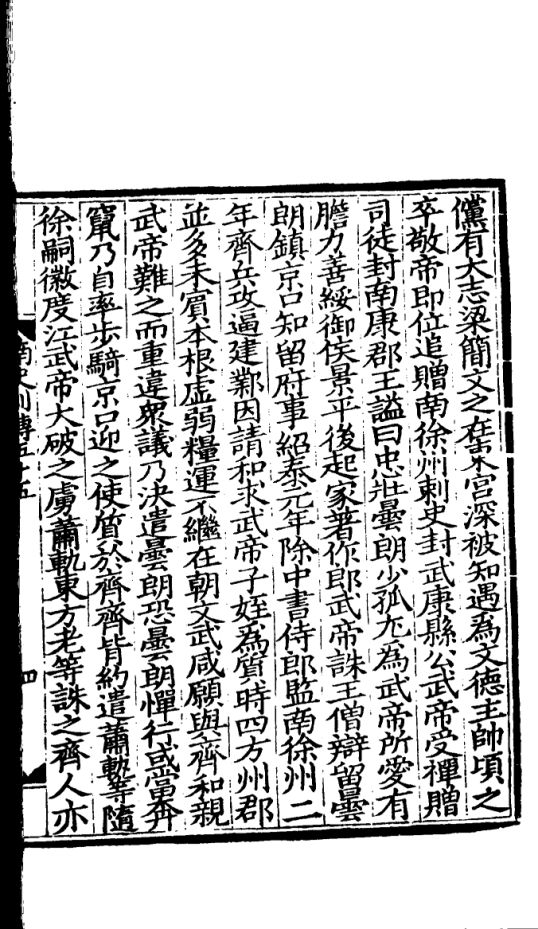 儻有大志梁簡文之在東宮深被知遇為文德主帥頃之
卒敬帝即位追贈南徐州刺史封武康縣公武帝受禪贈
司徒封南康郡王謚曰忠壯曇朗少孤尤為武帝所愛有
膽力善綏御侯景平後起家著作郎武帝誅王僧辯留曇
朗鎮京口知留府事紹泰元年除中書侍郎監南徐州二
年齊兵攻逼建鄴因請和求武帝子姪為質時四方州郡
並多未賓本根虛弱糧運不繼在朝文武咸願與齊和親
武帝難之而重違衆議乃決遣曇朗恐曇朗憚行或當奔
竄乃自率步騎京口迎之使質於齊齊背約遣蕭軌等隨
徐嗣徽度江武帝大破之虜蕭軌東方老等誅之齊人亦
南史列傳五十五
四